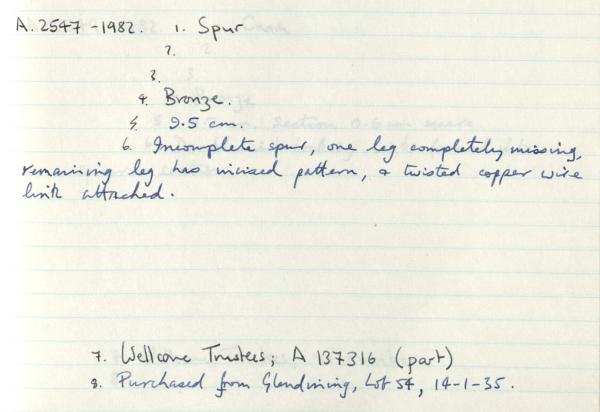 A. 2547-1982. 1. Spur
2.
3.
4. Bronze.
5. 9.5 cm.
6. Incomplete spur, one leg completely missing,
remaining leg has incised pattern, & twisted copper wire
link attached.
7. Wellcome Trustees; A 137316 (part)
8. Purchased from Glendining, Lot 54, 14-1-35.